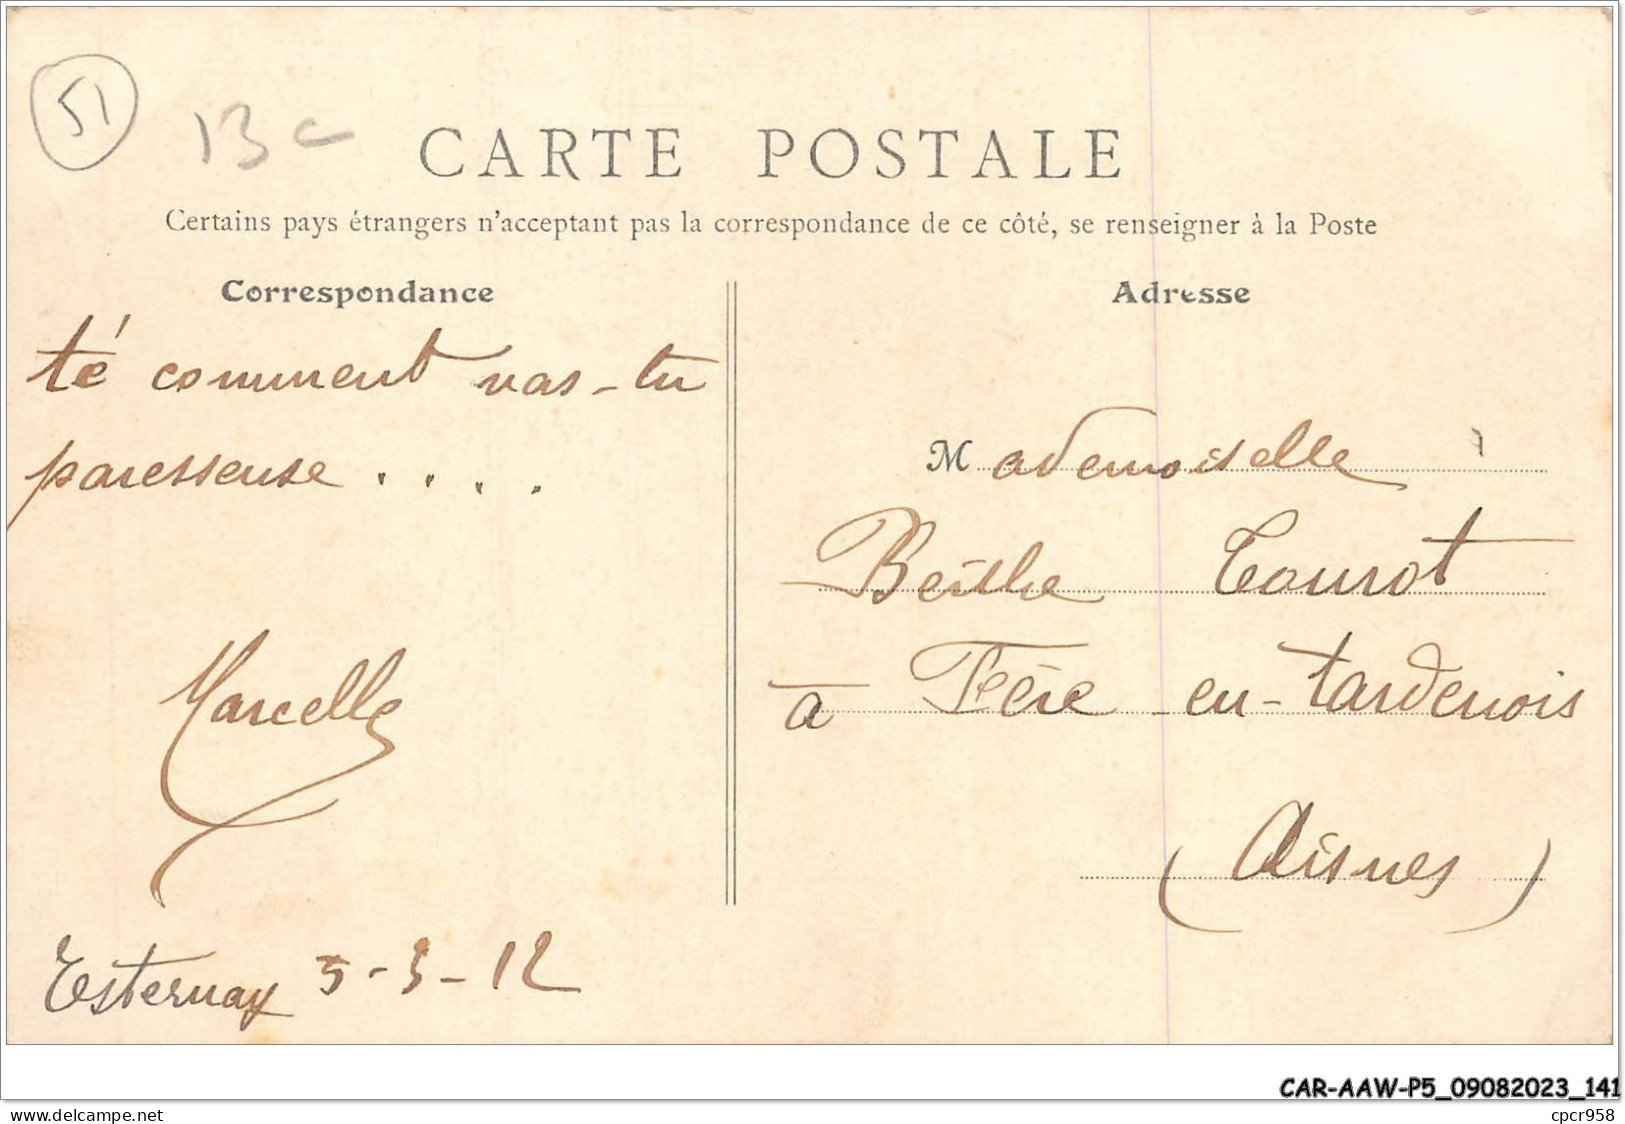 51
13c
CARTE POSTALE
Certains pays étrangers n'acceptant pas la correspondance de ce côté, se renseigner à la Poste
Correspondance
té comment vas-tu
paresseuse . . . .
Marcelle
Esternay 5-3-12
Adresse
Mademoiselle
Berthe Tourot
à Fère en-tardenois
(Aisnes)
CAR-AAW-P5_09082023_141
www.delcampe.net
cpcr958